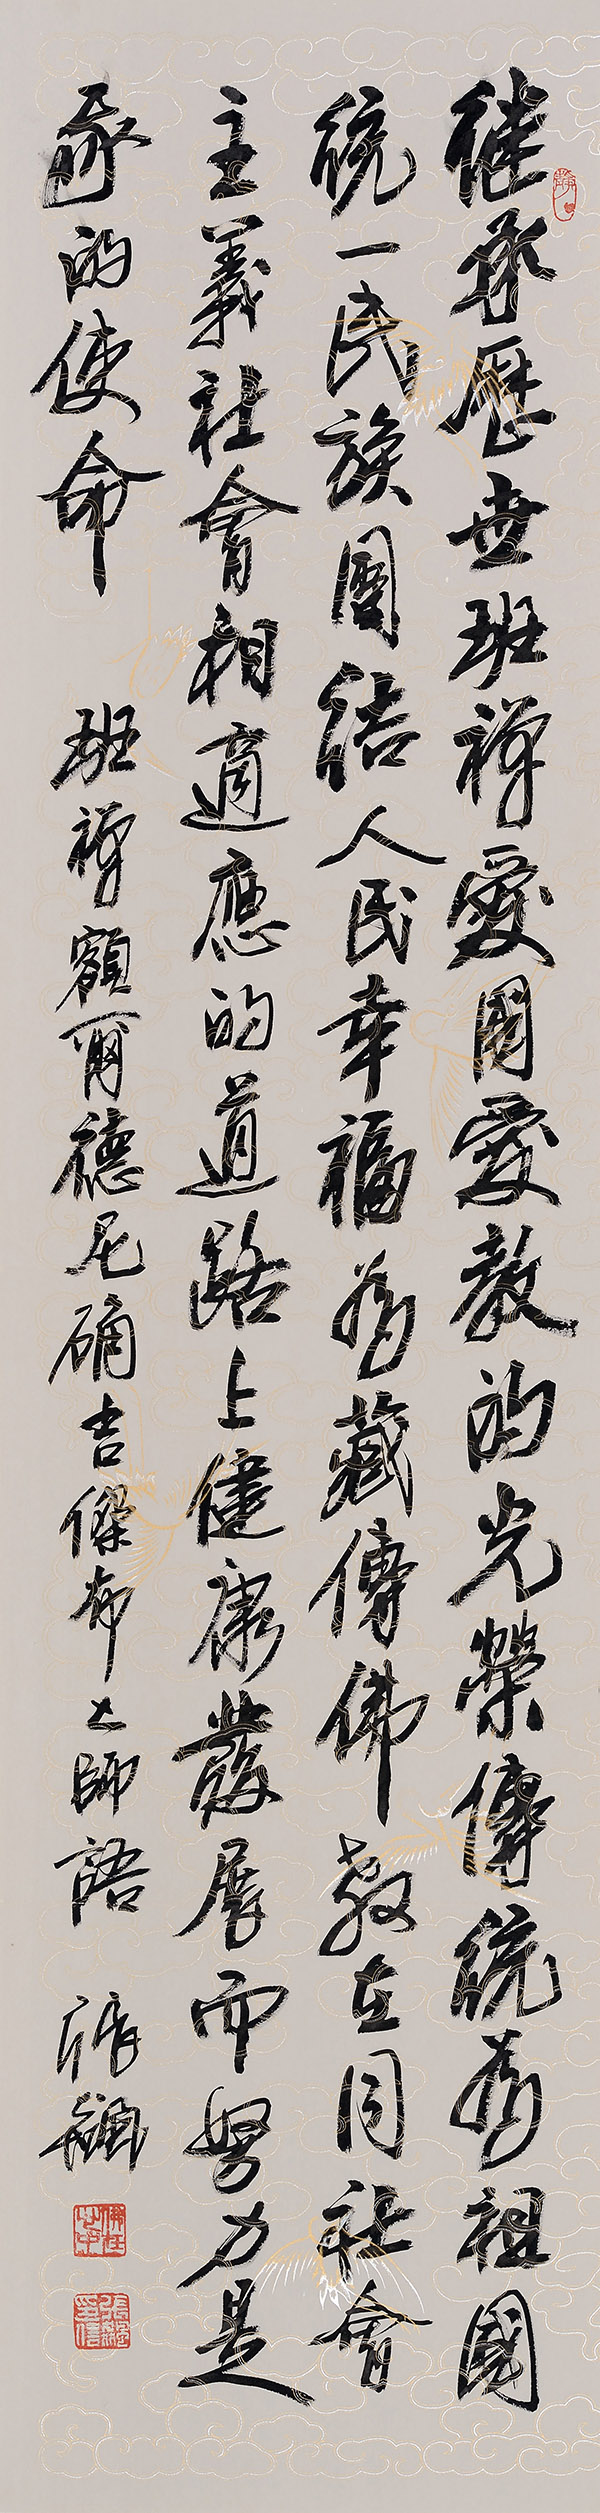 继承歷世班禪愛國愛教的光榮傳統為祖國
統一民族團結人民幸福為藏傳佛教在同社會
主義社會相適應的道路上健康發展而努力是
我的使命
班禪額爾德尼确吉傑布大師語
佛在心中